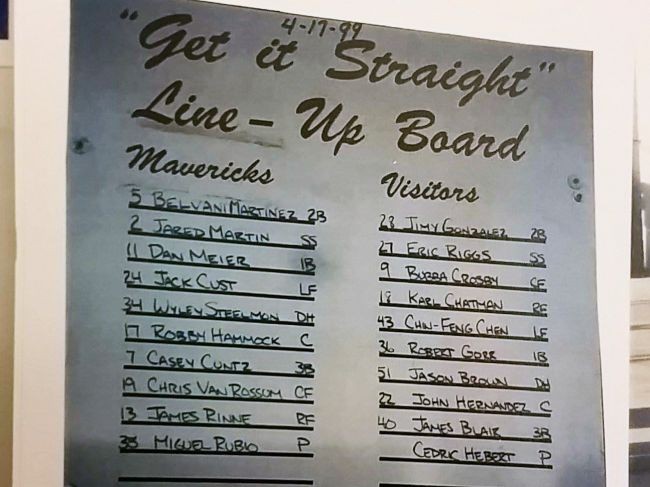 4-17-99
"Get it Straight"
Line-Up Board
Mavericks
5 BELVANI MARTINEZ 2B
2 JARED MARTIN SS
11 DAN MEIER 1B
24 JACK CUST LF
34 WYLEY STEELMON DH
17 ROBBY HAMMOCK C
7 CASEY CUNTZ 3B
19 CHRIS VAN ROSSUM CF
13 JAMES RINNE RF
38 MIGUEL RUBIO P
Visitors
23 JIMY GONZALEZ 2B
27 ERIC RIGGS SS
9 BUBBA CROSBY CF
18 KARL CHATMAN RF
43 CHIN-FENG CHEN LF
36 ROBERT GORR 1B
51 JASON BROWN DH
22 JOHN HERNANDEZ C
40 JAMES BLAIR 3B
CEDRIC HEBERT P